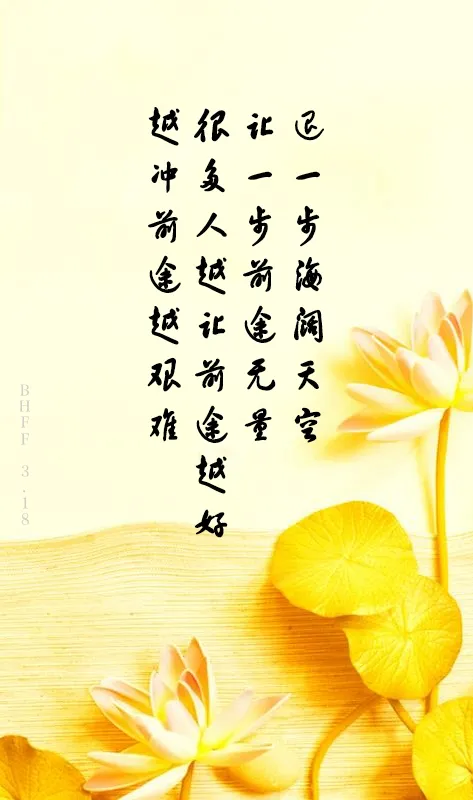 退一步海阔天空
让一步前途无量
很多人越让前途越好
越冲前途越艰难
BHFF 3.18